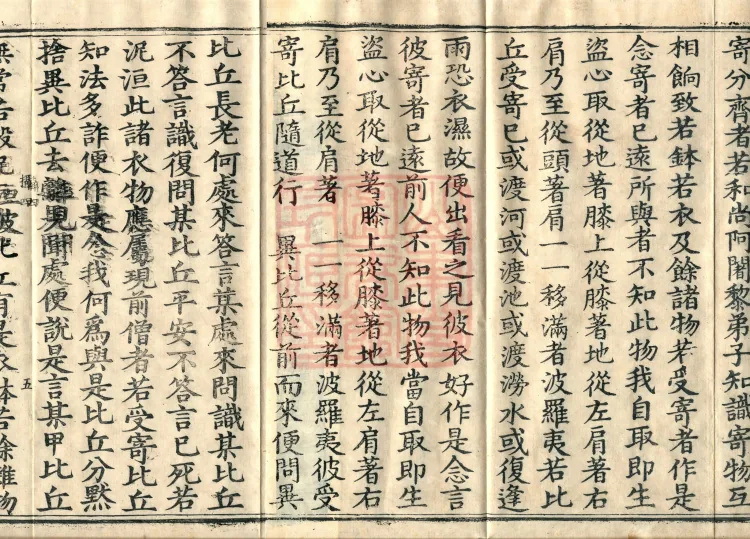 寄分齊者若和尚阿闍黎弟子知識寄物互
相餉致若鉢若衣及餘諸物若受寄者作是
念寄者已遠所與者不知此物我自取即生
盜心取從地著膝上從膝著地從左肩著右
肩乃至從頭著肩一一移滿者波羅夷若比
丘受寄已或渡河或渡池或渡澇水或復逢
雨恐衣濕故便出看之見彼衣好作是念言
彼寄者已遠前人不知此物我當自取即生
盜心取從地著膝上從膝著地從左肩著右
肩乃至從肩著一一移滿者波羅夷彼受
寄比丘隨道行 異比丘從前而來便問異
比丘長老何處來答言某處來問識某比丘
不答言識復問某比丘平安不答言已死若
泥洹此諸衣物應屬現前僧者若受寄比丘
知法多詐便作是念我何為與是比丘分默
捨異比丘去離見聞處便說是言某甲比丘
無常若般泥洹彼比丘有是衣鉢若餘雜物
五